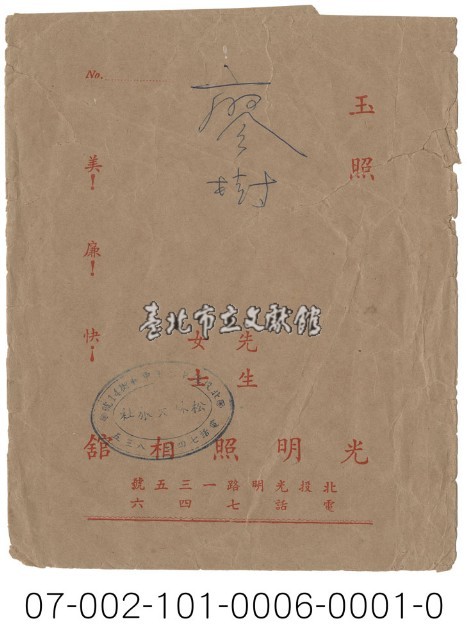 No.
玉照
廖樹
美！廉！快！
臺北市立文獻館
先生
女士
光明照相舘
北投光明路一三五號
電話七四六
07-002-101-0006-0001-0